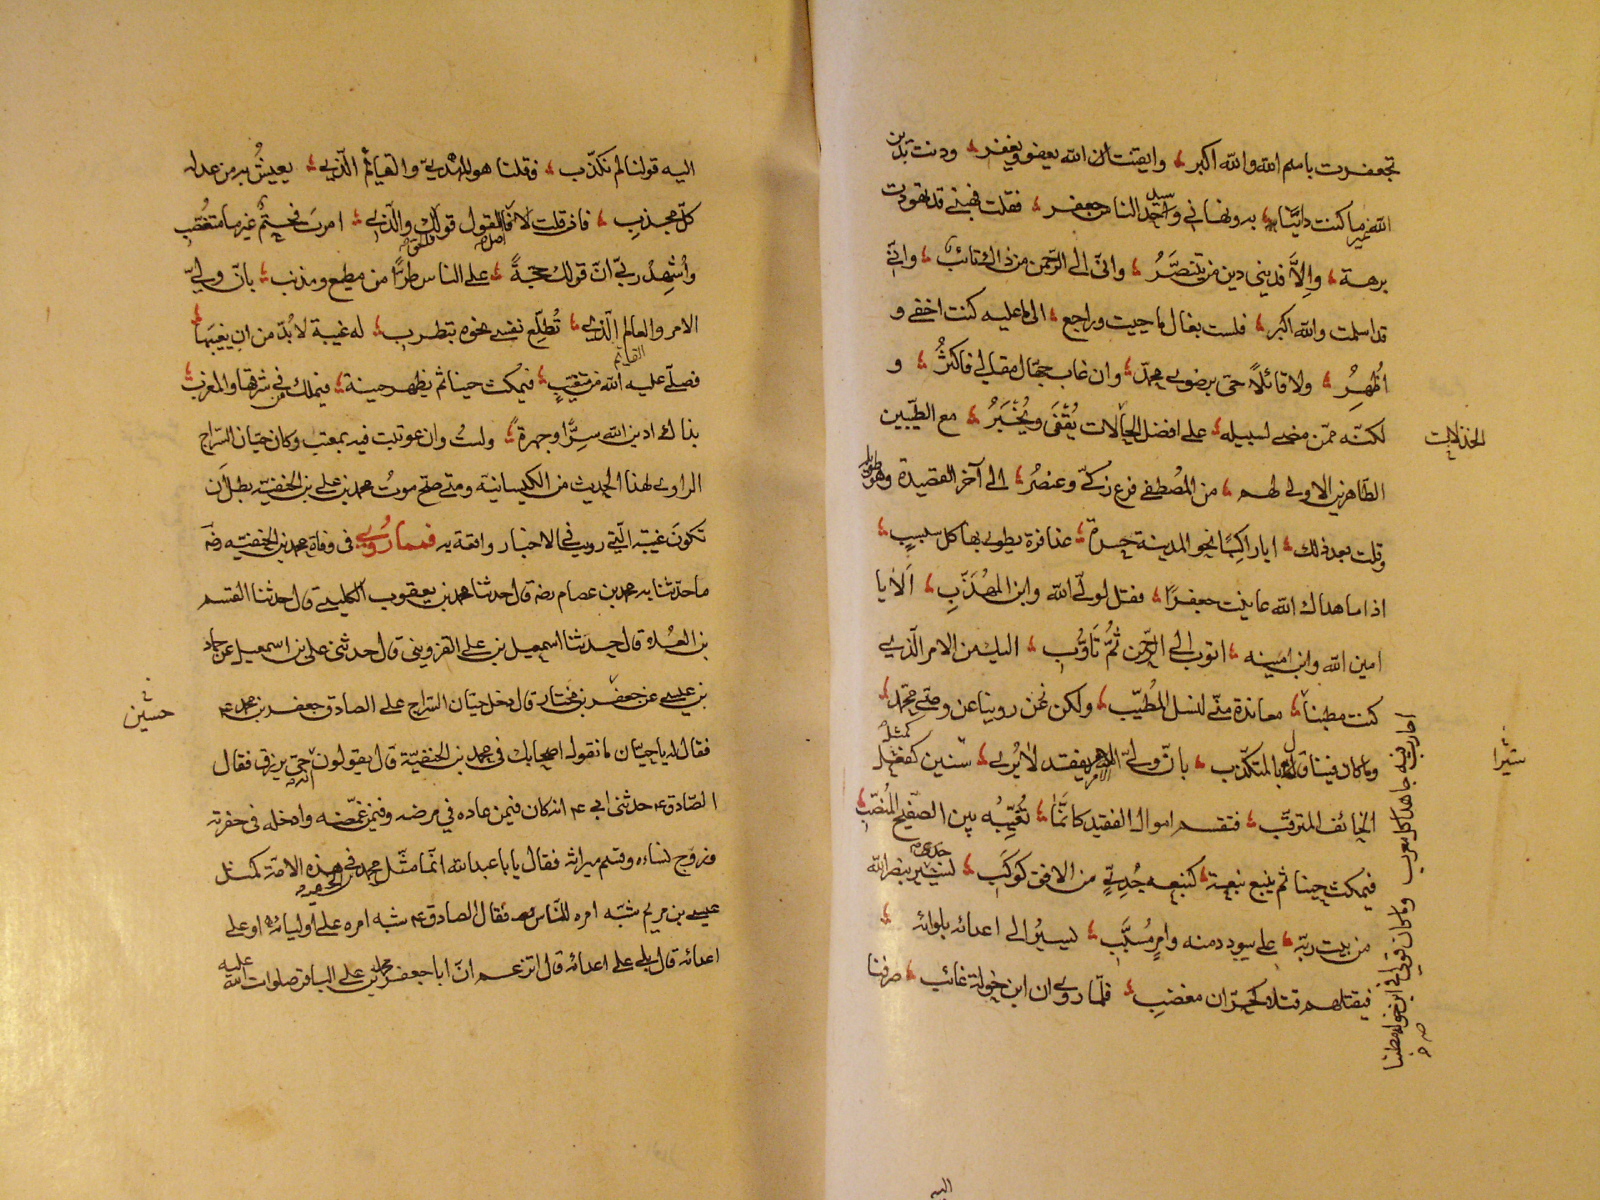 تجعفرت باسم الله والله اكبر وايقنت ان الله يعفو ويغفر ودنت بدين
الله غير ما كنت داينا به ونهاني سيد الناس جعفر فقلت فهبني قد تهودت
برهة والا فديني دين من يتنصر واني الى الرحمن من ذاك تائب واني
قد اسلمت والله اكبر فلست بغال ما حييت وراجع الى ما عليه كنت اخفي و
اظهر ولا قائلا حي برضوى محمد وان عاب جهال مقالي فاكثروا و
لكنه ممن مضى لسبيله على افضل الحالات يقفى ويخبر مع الطيبين
الطاهرين الاولى لهم من المصطفى فرع زكي وعنصر الى آخر القصيدة وهو طويلة
وقلت بعد ذلك ايا راكبا نحو المدينة جسرة عذافرة يطوى بها كل سبسب
اذا ما هداك الله عاينت جعفرا فقل لولي الله وابن المهذب الا يا
امين الله وابن امينه اتوب الى الرحمن ثم تاوب اليك من الامر الذي
كنت مطنبا معاندة مني لنسل المطيب ولكن نحن روينا عن وصي محمد
وما كان فينا قال بالمتكذب بان ولي الامر يفقد لا يرى سنين كفعل
الخائف المترقب فتقسم اموال الفقيد كانما تغيبه بين الصفيح المنصب
فيمكث حينا ثم ينبع نبعة كنبعه جدي من الافق كوكب يسير بنصر الله
من بيت ربه على سودد منه وامر مسبب يسير الى اعدائه بلوائه
فيقتلهم قتلا كحران مغضب فلما روى ان ابن خولة غائب صرفنا
الخذلات
سترا
احارب فيه جاهدا كل معرب وما كان قولي في ابن خولة مطنبا
اليه
اليه قولنا لم نكذب وقلنا هو المهدي والقائم الذي يعيش به من عدله
كل مجدب فان قلت لا فالقول قولك والذي امرت فحتم غير ما متعصب
واشهد ربي ان قولك حجة على الناس طرا من مطيع ومذنب بان ولي
الامر والعالم الذي تطلع نفسي نحوه بتطرب له غيبة لا بد من ان يغيبها
القائم
فصلى عليه الله من متغيب فيمكث حينا ثم يظهر حينه فيملك من في شرقها والمغرب
بذاك ادين الله سرا وجهرة ولست وان عوتبت فيه بمعتب وكان حيان السراج
الراوي لهذا الحديث من الكيسانية ومتى صح موت محمد بن علي بن الحنفية بطل ان
تكون غيبته التي رويت في الاخبار واقعة به فمما روي في وفاة محمد بن الحنفية رضه
ما حدثنا به محمد بن عصام رضه قال حدثنا محمد بن يعقوب الكليني قال حدثنا القسم
بن العلاء قال حدثنا اسمعيل بن علي القزويني قال حدثني علي بن اسمعيل عن حماد
بن عيسى عن جعفر بن مختار قال دخل حيان السراج على الصادق جعفر بن محمد ع
فقال له يا حيان ما تقول اصحابك في محمد بن الحنفية قال يقولون حي يرزق فقال
الصادق ع حدثني ابي ع انه كان فيمن عاده في مرضه وفيمن غمضه وادخله في حفرته
وزوج نساءه وقسم ميراثه فقال يا با عبد الله انما مثل محمد في هذه الامة كمثل
عيسى بن مريم شبه امره للناس فقال الصادق ع شبه امره على اوليائه او على
اعدائه قال بلى على اعدائه قال اتزعم ان ابا جعفر محمد بن علي الباقر صلوات الله عليه
حسين